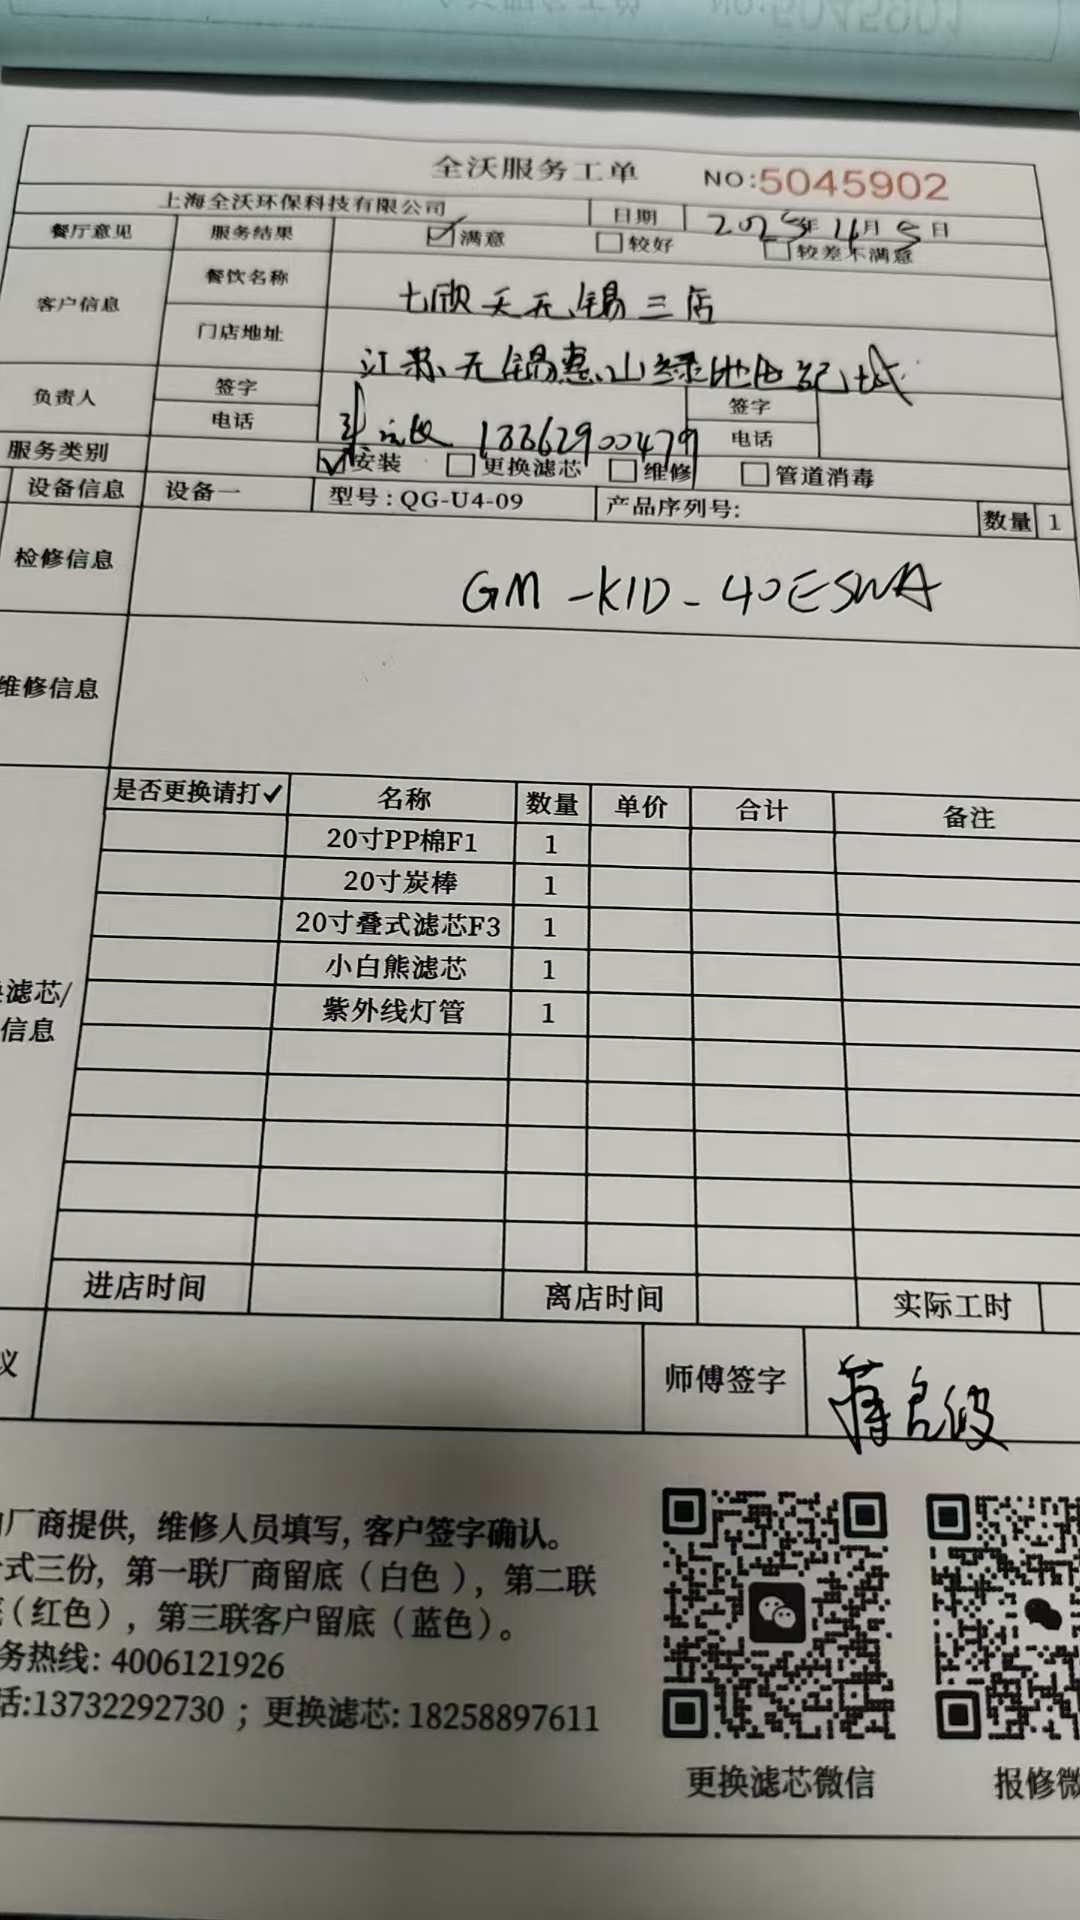 全沃服务工单 NO:5045902
上海全沃环保科技有限公司 日期 年 11月 5日
餐厅意见 服务结果 ☑满意 □较好 □较差不满意
客户信息 餐饮名称 七欣天无锡三店
门店地址 江苏无锡惠山绿地世纪城
负责人 签字 签字
电话 18862900479 电话
服务类别 ☑安装 □更换滤芯 □维修 □管道消毒
设备信息 设备一 型号:QG-U4-09 产品序列号: 数量 1
检修信息 GM-K1D-40ESWA
维修信息
是否更换请打✓ 名称 数量 单价 合计 备注
20寸PP棉F1 1
20寸炭棒 1
20寸叠式滤芯F3 1
滤芯/ 小白熊滤芯 1
信息 紫外线灯管 1
进店时间 离店时间 实际工时
议 师傅签字 蒋良俊
厂商提供, 维修人员填写, 客户签字确认。
式三份, 第一联厂商留底（白色）, 第二联
（红色）, 第三联客户留底（蓝色）。
务热线: 4006121926
话:13732292730 ; 更换滤芯: 18258897611
更换滤芯微信 报修微